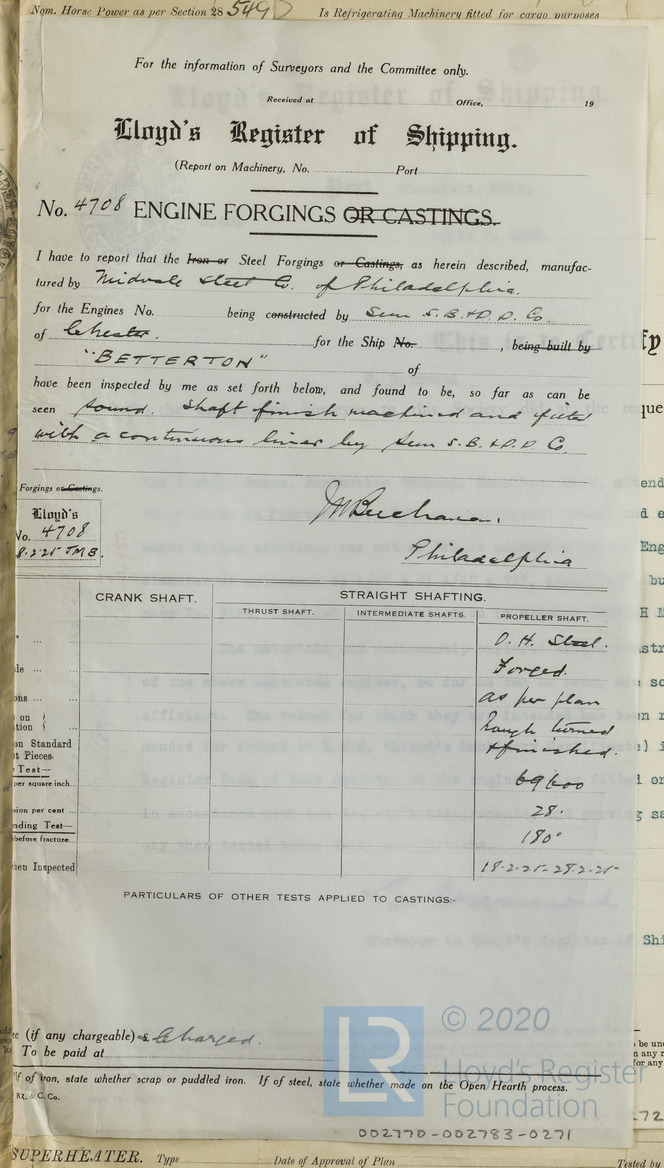 Nom. Horse Power as per Section 28 549 Is Refrigerating Machinery fitted for cargo purposes
For the information of Surveyors and the Committee only.
Received at Office, 19
Lloyd's Register of Shipping.
(Report on Machinery, No. Port
No. 4708 ENGINE FORGINGS OR CASTINGS.
I have to report that the Iron or Steel Forgings or Castings, as herein described, manufac-
tured by Midvale Steel Co. of Philadelphia.
for the Engines No. being constructed by Sun S.B. & D.D. Co.
of Chester. for the Ship No. , being built by
"BETTERTON" of
have been inspected by me as set forth below, and found to be, so far as can be
seen sound. Shaft finish machined and fitted
with a continuous liner by Sun S.B. & D.D. Co.
Forgings or Castings.
J M Buchanan.
Lloyd's
No. 4708
8.2.25 J.M.B.
Philadelphia
CRANK SHAFT. STRAIGHT SHAFTING.
THRUST SHAFT. INTERMEDIATE SHAFTS. PROPELLER SHAFT.
O.H. Steel.
Forged.
as per plan
Rough turned
& finished.
on Standard
t Pieces.
Test—
per square inch 69600
sion per cent 28.
nding Test—
before fracture. 180°
hen Inspected 18-2-25-28-2-25
PARTICULARS OF OTHER TESTS APPLIED TO CASTINGS:-
e (if any chargeable) £ Charged.
To be paid at
If of iron, state whether scrap or puddled iron. If of steel, state whether made on the Open Hearth process.
RR. & C. Co.
LR © 2020
Lloyd's Register
Foundation
002770-002783-0271
SUPERHEATER. Type Date of Approval of Plan Tested by